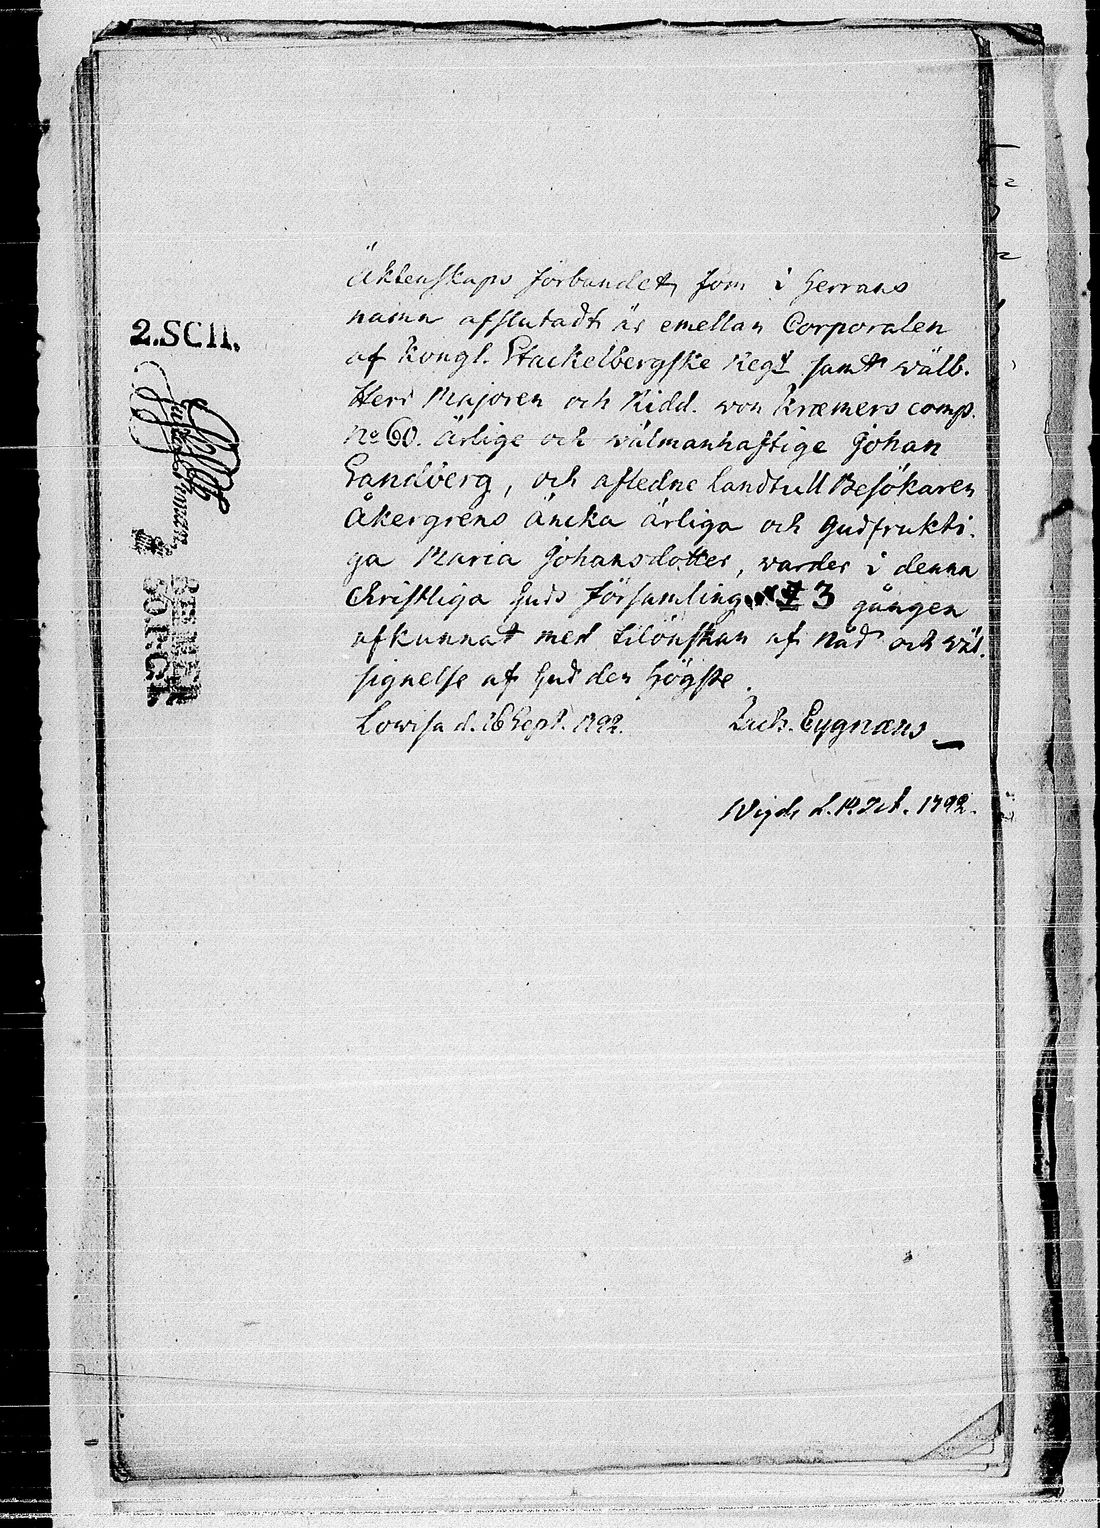 2.SCH.
Äktenskaps förbundet, som i Herrans
namn afslutadt är emellan Corporalen
af Kongl. Stackelbergske Regt samt wälb.
Herr Majoren och Ridd. von Kræmers comp.
No 60. ärlige och wälmanhaftige Johan
Sandberg, och afledne Landtull Besökaren
Åkergrens äncka ärliga och gudfrukti-
ga Maria Johansdotter, warder i denna
Christliga Guds församling 3 gången
afkunnat med tilönskan af nåd och wäl-
signelse af Gud den Högste.
Lowisa d. 16 Sept. 1792.
Zach. Cygnæus
Wigde d. 14 Oct. 1792.